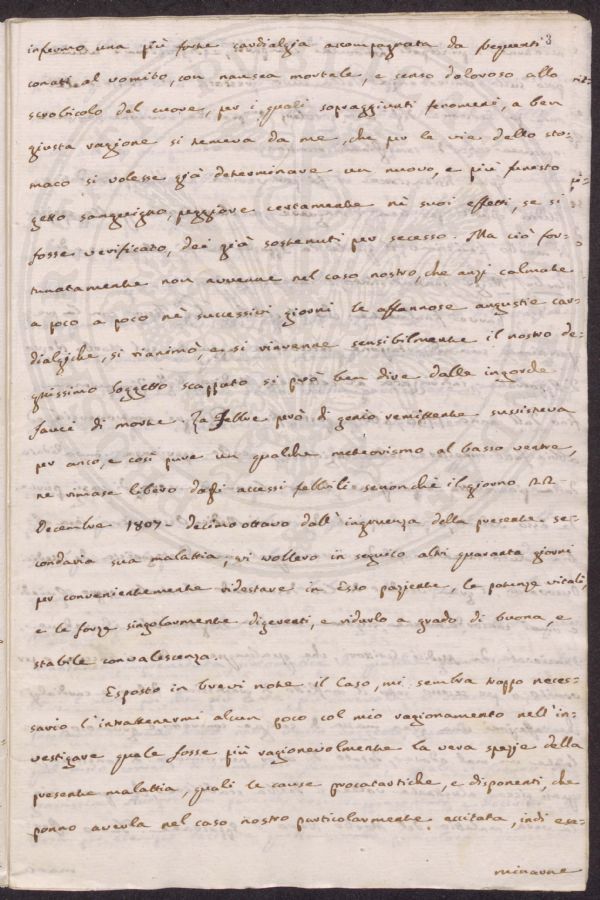 3
infermo una più forte cardialgia accompagnata da frequenti
conati al vomito, con nausea mortale, e senso doloroso allo
scrobicolo del cuore, per i quali sopraggiunti fenomeni, a ben
giusta ragione si temeva da me, che per le vie dello sto-
maco si volesse già determinare un nuovo, e più funesto
getto sanguigno, peggiore certamente nè suoi effetti, se si
fosse verificato, dei già sostenuti per secesso. Ma ciò for-
tunatamente non avvenne nel caso nostro, che anzi calmate
a poco a poco nè successivi giorni le affannose angustie car-
dialgiche, si rianimò, e si rinvenne sensibilmente il nostro de-
gnissimo soggetto scappato si può ben dire dalle ingorde
fauci di morte. La Febbre però di genio remittente sussisteva
per anco, e così pure un qualche meteorismo al basso ventre,
ne rimase libero dagli accessi febbrili senonchè il giorno 22
Decembre 1807. decimo ottavo dall'ingruenza della presente se-
condaria sua malattia, vi vollero in seguito altri quaranta giorni
per convenientemente ridestare in Esso paziente, le potenze vitali,
e le forze singolarmente digerenti, e ridurlo a grado di buona, e
stabile convalescenza.
Esposto in brevi note il Caso, mi sembra troppo neces-
sario l'intrattenermi alcun poco col mio ragionamento nell'in-
vestigare quale fosse più ragionevolmente la vera spezie della
presente malattia, quali le cause procatartiche, e disponenti, che
ponno averla nel caso nostro particolarmente eccitata, indi esa-
minarne